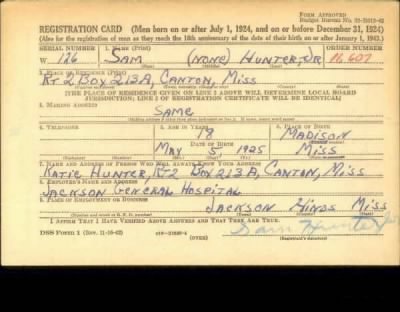 FORM APPROVED
REGISTRATION CARD (Men born on or after July 1, 1924, and on or before December 31, 1924)
(Also for the registration of men as they reach the 18th anniversary of the date of their birth on or after January 1, 1925.)
SERIAL NUMBER 1. NAME (Print) ORDER NUMBER
W 126 SAM (NONE) HUNTER, JR. 11,607
(First) (Middle) (Last)
2. PLACE OF RESIDENCE (Print)
RT 2 BOX 213A, CANTON, MISS
[THE PLACE OF RESIDENCE GIVEN ON LINE 2 ABOVE WILL DETERMINE LOCAL BOARD
JURISDICTION; LINE 2 OF REGISTRATION CERTIFICATE WILL BE IDENTICAL]
3. MAILING ADDRESS
SAME
4. TELEPHONE 5. AGE IN YEARS 6. PLACE OF BIRTH
18 MADISON
DATE OF BIRTH
MAY 5 1925 MISS
7. NAME AND ADDRESS OF PERSON WHO WILL ALWAYS KNOW YOUR ADDRESS
KATIE HUNTER, RT2 BOX 213A, CANTON, MISS
8. EMPLOYER'S NAME AND ADDRESS
JACKSON GENERAL HOSPITAL
9. PLACE OF EMPLOYMENT OR BUSINESS
JACKSON HINDS MISS
I AFFIRM THAT I HAVE VERIFIED ABOVE ANSWERS AND THAT THEY ARE TRUE.
Sam Hunter Jr
DSS Form 1 (Rev. 11-16-42) (OVER) (Registrant's signature)